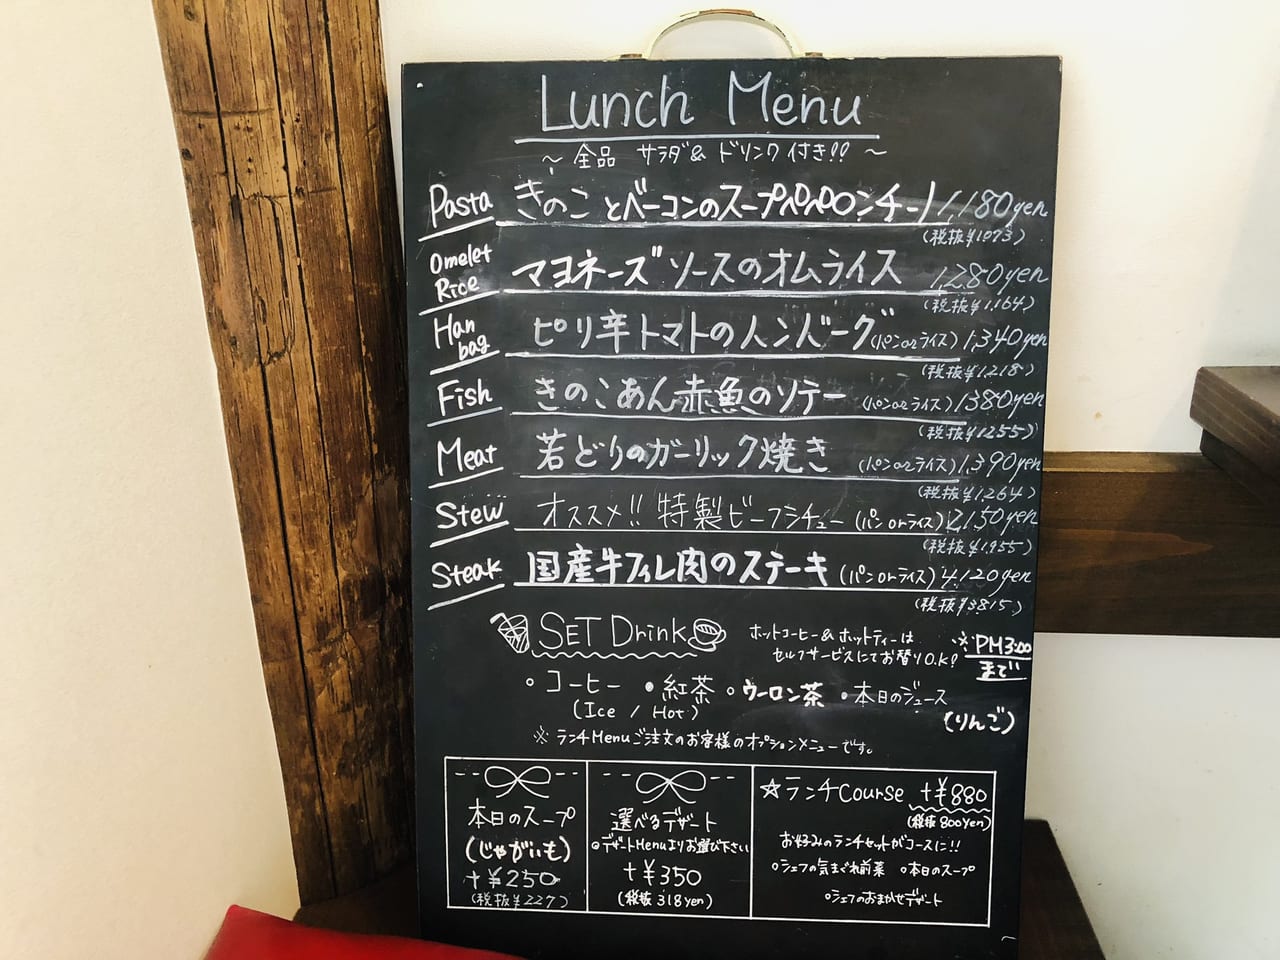 Lunch Menu
~ 全品 サラダ& ドリンク付き!! ~
Pasta きのことベーコンのスープペペロンチーノ 1,180yen
(税抜¥1073)
Omelet Rice マヨネーズソースのオムライス 1,280yen
(税抜¥1,164)
Hanbag ピリ辛トマトのハンバーグ(パンorライス) 1,340yen
(税抜¥1,218)
Fish きのこあん赤魚のソテー (パンorライス) 1380yen
(税抜¥1255)
Meat 若どりのガーリック焼き (パンorライス) 1,390yen
(税抜¥1,264)
Stew オススメ!! 特製ビーフシチュー (パンorライス) 2,150yen
(税抜¥1,955)
Steak 国産牛フィレ肉のステーキ (パンorライス) 4,120yen
(税抜¥3815)
SET Drink
ホットコーヒー&ホットティーは
セルフサービスにてお替りO.K!
※PM3:00
まで
・コーヒー ・紅茶 ・ウーロン茶 ・本日のジュース
(Ice / Hot)
(りんご)
※ ランチMenuご注文のお客様のオプションメニューです。
本日のスープ
(じゃがいも)
+¥250
(税抜¥227)
選べるデザート
◎デザートMenuよりお選び下さい
+¥350
(税抜 318yen)
☆ランチCourse +¥880
(税抜 800yen)
お好みのランチセットがコースに!!
○シェフの気まぐれ前菜 ○本日のスープ
○シェフのおまかせデザート